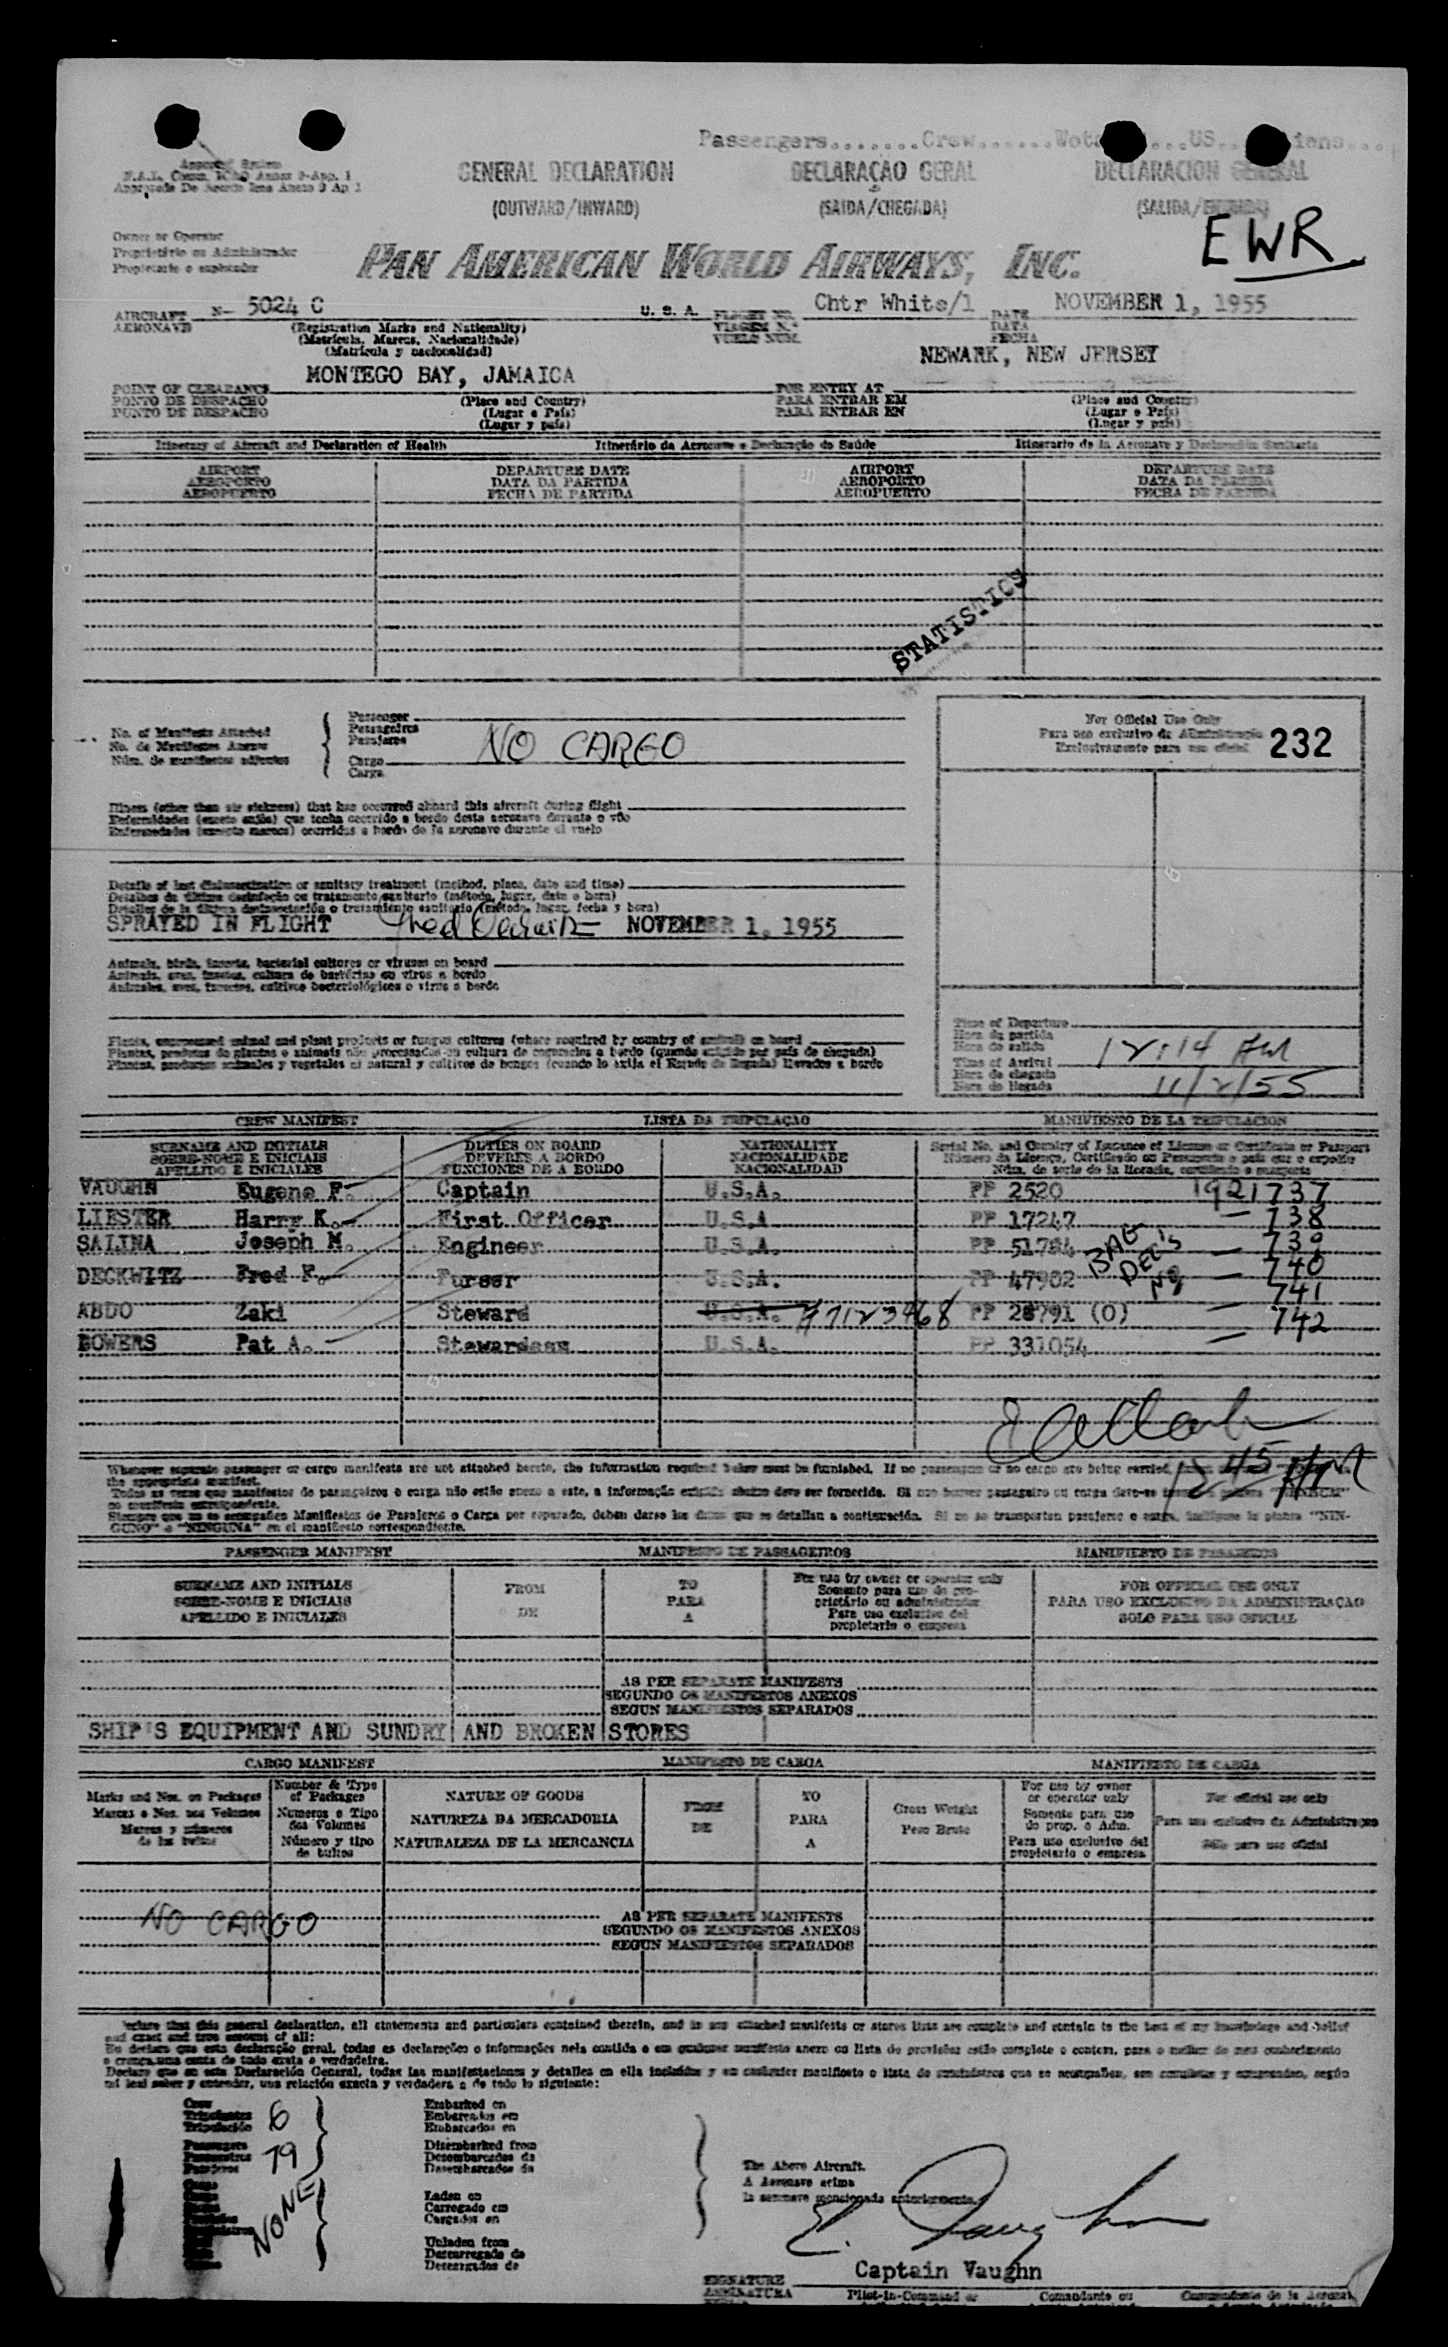 Passengers.......Crew......
GENERAL DECLARATION DECLARAÇÃO GERAL DECLARACION GENERAL
(OUTWARD/INWARD) (SAIDA/CHEGADA) (SALIDA/ENTRADA)
EWR
Owner or Operator
Proprietário ou Administrador
Propietario o explotador
PAN AMERICAN WORLD AIRWAYS, INC.
AIRCRAFT N- 5024 C U. S. A. FLIGHT NO. Chtr White/1 DATE NOVEMBER 1, 1955
AERONAVE (Registration Marks and Nationality) VIAGEM N.º DATA
(Matrícula, Marcas, Nacionalidade) VUELO NUM. FECHA
(Matrícula y nacionalidad)
MONTEGO BAY, JAMAICA NEWARK, NEW JERSEY
POINT OF CLEARANCE (Place and Country) FOR ENTRY AT (Place and Country)
PONTO DE DESPACHO (Lugar e País) PARA ENTRAR EM (Lugar e País)
PUNTO DE DESPACHO (Lugar y país) PARA ENTRAR EN (Lugar y país)
Itinerary of Aircraft and Declaration of Health Itinerário da Aeronave e Declaração de Saúde Itinerario de la Aeronave y Declaración Sanitaria
AIRPORT DEPARTURE DATE AIRPORT DEPARTURE DATE
AEROPORTO DATA DA PARTIDA AEROPORTO DATA DA PARTIDA
AEROPUERTO FECHA DE PARTIDA AEROPUERTO FECHA DE PARTIDA
STATISTICS
No. of Manifests Attached
No. de Manifestos Anexos
Núm. de manifiestos adjuntos
Passenger
Passageiros
Pasajeros
Cargo
Carga
NO CARGO
For Official Use Only
Para uso exclusivo da Administração
Exclusivamente para uso oficial
232
Illness (other than air sickness) that has occurred aboard this aircraft during flight
Enfermidades (exceto enjôo) que tenha ocorrido a bordo desta aeronave durante o vôo
Enfermedades (excepto mareos) ocurridas a bordo de la aeronave durante el vuelo
Details of last disinsectization or sanitary treatment (method, place, date and time)
Detalhes da última desinfeção ou tratamento sanitario (método, lugar, data e hora)
Detalles de la última desinsectación o tratamiento sanitario (método, lugar, fecha y hora)
SPRAYED IN FLIGHT NOVEMBER 1, 1955
Animals, birds, insects, bacterial cultures or viruses on board
Animais, aves, insetos, cultura de bactérias ou virus a bordo
Animales, aves, insectos, cultivos bacteriológicos o virus a bordo
Plants, unprocessed animal and plant products or fungus cultures (where required by country of arrival) on board
Plantas, produtos de plantas e animais não processados ou cultura de cogumelos a bordo (quando exigido por país de chegada)
Plantas, productos animales y vegetales al natural y cultivos de hongos (cuando lo exija el Estado de llegada) llevados a bordo
Time of Departure
Hora da partida
Hora de salida
Time of Arrival
Hora da chegada
Hora de llegada
12:14 AM
11/2/55
CREW MANIFEST LISTA DA TRIPULAÇAO MANIFIESTO DE LA TRIPULACION
SURNAME AND INITIALS DUTIES ON BOARD NATIONALITY Serial No. and Country of Issuance of License or Certificate or Passport
SOBRE-NOME E INICIAIS DEVERES A BORDO NACIONALIDADE Número da Licença, Certificado ou Passaporte e país que o expediu
APELLIDO E INICIALES FUNCIONES DE A BORDO NACIONALIDAD Núm. de serie de la licencia, certificado o pasaporte
VAUGHN Eugene F. Captain U.S.A. PP 2520 1921737
LIESTER Harry K. First Officer U.S.A PP 17247 — 738
SALINA Joseph M. Engineer U.S.A. PP 51784 — 739
DECKWITZ Fred F. Purser U.S.A. PP 47982 — 740
BAG DEC'S
ABDO Zaki Steward U.S.A. A7123468 PP 28791 (O) — 741
BOWERS Pat A. Stewardess U.S.A. PP 331054 — 742
12 45 AM
Whenever separate passenger or cargo manifests are not attached hereto, the information required below must be furnished. If no passengers or no cargo are being carried,
the appropriate manifest.
Todas as vezes que manifestos de passageiros e carga não estão anexo a este, a informação exigida abaixo deve ser fornecida.
no manifesto correspondente.
Siempre que no se acompañen Manifiestos de Pasajeros o Carga por separado, deben darse los datos que se detallan a continuación. Si no se transportan pasajeros o carga, indíquese la palabra "NIN-
GUNO" o "NINGUNA" en el manifiesto correspondiente.
PASSENGER MANIFEST MANIFESTO DE PASSAGEIROS MANIFIESTO DE PASAJEROS
SURNAME AND INITIALS FROM TO For use by owner or operator only FOR OFFICIAL USE ONLY
SOBRE-NOME E INICIAIS DE PARA Somente para uso do proprietário ou administrador PARA USO EXCLUSIVO DA ADMINISTRAÇAO
APELLIDO E INICIALES A Para uso exclusivo del propietario o empresa SOLO PARA USO OFICIAL
AS PER SEPARATE MANIFESTS
SEGUNDO OS MANIFESTOS ANEXOS
SEGUN MANIFIESTOS SEPARADOS
SHIP'S EQUIPMENT AND SUNDRY AND BROKEN STORES
CARGO MANIFEST MANIFESTO DE CARGA MANIFIESTO DE CARGA
Marks and Nos. on Packages Number & Type of Packages NATURE OF GOODS FROM TO Gross Weight For use by owner or operator only For official use only
Marcas e Nos. nos Volumes Numeros e Tipo dos Volumes NATUREZA DA MERCADORIA DE PARA Peso Bruto Somente para uso do prop. o Adm. Para uso exclusivo da Administração
Marcas y números de los bultos Número y tipo de bultos NATURALEZA DE LA MERCANCIA A Para uso exclusivo del propietario o empresa Sólo para uso oficial
NO CARGO
AS PER SEPARATE MANIFESTS
SEGUNDO OS MANIFESTOS ANEXOS
SEGUN MANIFIESTOS SEPARADOS
declare that this general declaration, all statements and particulars contained therein, and in any attached manifests or stores lists are complete and contain to the best of my knowledge and belief
and exact and true account of all:
Eu declaro que esta declaração geral, todas as declarações e informações nela contida e em qualquer manifesto anexo ou lista de provisões estão completo e contem, para o melhor de meu conhecimento
e crença, uma conta de todo exata e verdadeira.
Declaro que en esta Declaración General, todas las manifestaciones y detalles en ella incluidos y en cualquier manifiesto o lista de suministros que se acompañan, son completos y comprenden, según
mi leal saber y entender, una relación exacta y verdadera a de todo lo siguiente:
Crew
Tripulantes
Tripulación
6
Embarked on
Embarcados em
Embarcados en
Passengers
Pasajeros
79
Disembarked from
Desembarcados da
Desembarcados de
NONE
Laden on
Carregado em
Cargados en
Unladen from
Descarregado da
Descargados de
The Above Aircraft.
A Aeronave acima
la aeronave mencionada anteriormente.
E. Vaughn
Captain Vaughn
SIGNATURE Pilot-in-Command or Comandante ou Comandante de la Aeronave
ASSINATURA